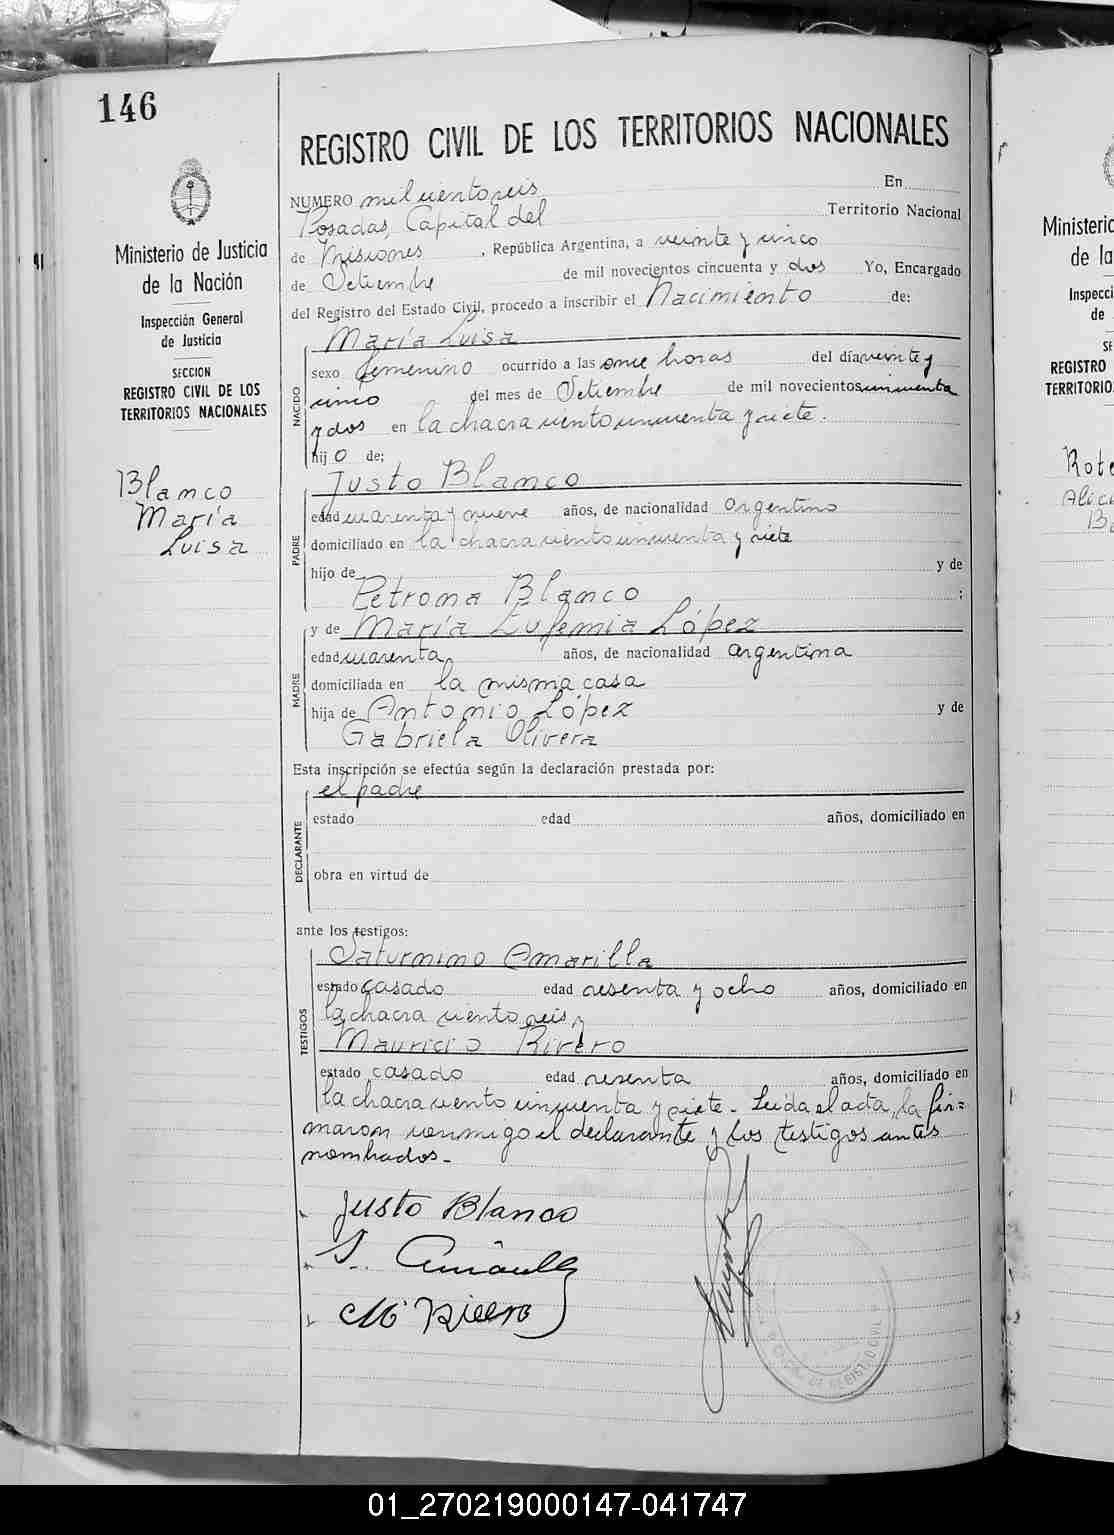 146
REGISTRO CIVIL DE LOS TERRITORIOS NACIONALES
Ministerio de Justicia
de la Nación
Inspección General
de Justicia
SECCION
REGISTRO CIVIL DE LOS
TERRITORIOS NACIONALES
Blanco
María
Luisa
NUMERO mil ciento seis En
Posadas, Capital del Territorio Nacional
de Misiones, República Argentina, a veinte y cinco
de Setiembre de mil novecientos cincuenta y dos Yo, Encargado
del Registro del Estado Civil, procedo a inscribir el Nacimiento de:
NACIDO
María Luisa
sexo femenino ocurrido a las once horas del día veinte y
cinco del mes de Setiembre de mil novecientos cincuenta
y dos en la chacra ciento cincuenta y siete.
hijo de;
PADRE
Justo Blanco
edad cuarenta y nueve años, de nacionalidad argentino
domiciliado en la chacra ciento cincuenta y siete
hijo de y de
Petrona Blanco ;
MADRE
y de María Eufemia López
edad cuarenta años, de nacionalidad argentina
domiciliada en la misma casa
hija de Antonio López y de
Gabriela Olivera
Esta inscripción se efectúa según la declaración prestada por:
DECLARANTE
el padre
estado edad años, domiciliado en
obra en virtud de
ante los testigos:
TESTIGOS
Saturnino Amarilla
estado casado edad sesenta y ocho años, domiciliado en
la chacra ciento seis y
Mauricio Rivero
estado casado edad sesenta años, domiciliado en
la chacra ciento cincuenta y siete. Leída el acta, la fir=
maron conmigo el declarante y los testigos antes
nombrados.-
Justo Blanco
S. Amarilla
M Rivero
REGISTRO CIVIL
Ministerio
de la
Inspecci
de
SE
REGISTRO
TERRITORIO
01_270219000147-041747